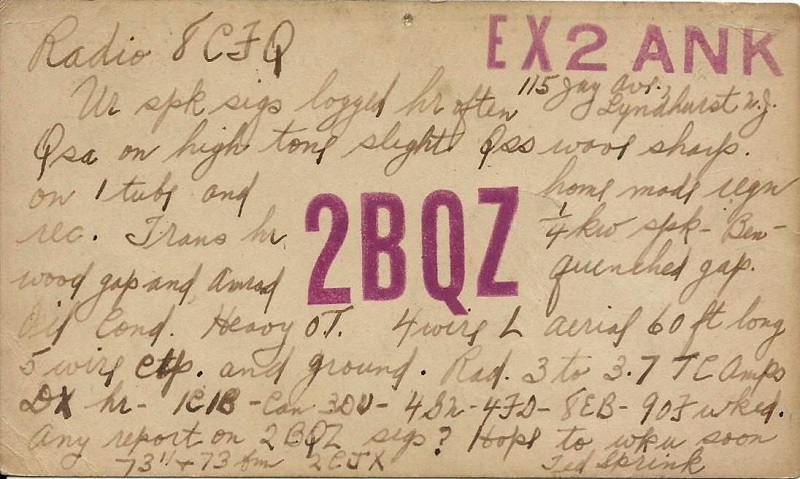 Radio 8CFQ
EX2ANK
115 Jay Ave.,
Lyndhurst N.J.
Ur spk sigs logged hr often
Qsa on high tone slight Qss wave sharp.
on 1 tube and home made regn
rec. Trans hr 1/4 kw spk - Ben-
2BQZ
wood gap and Amrad quenched gap.
Oil Cond. Heavy OT. 4 wire L aerial 60 ft long
5 wire ctp. and ground. Rad. 3 to 3.7 TC Amps
DX hr - 1CIB - Can 3DU - 4 - 4FD - 8EB - 9OF wked.
Any report on 2BQZ sigs? Hope to wku soon
73's + 73 fm 2CJX Ted Sprink